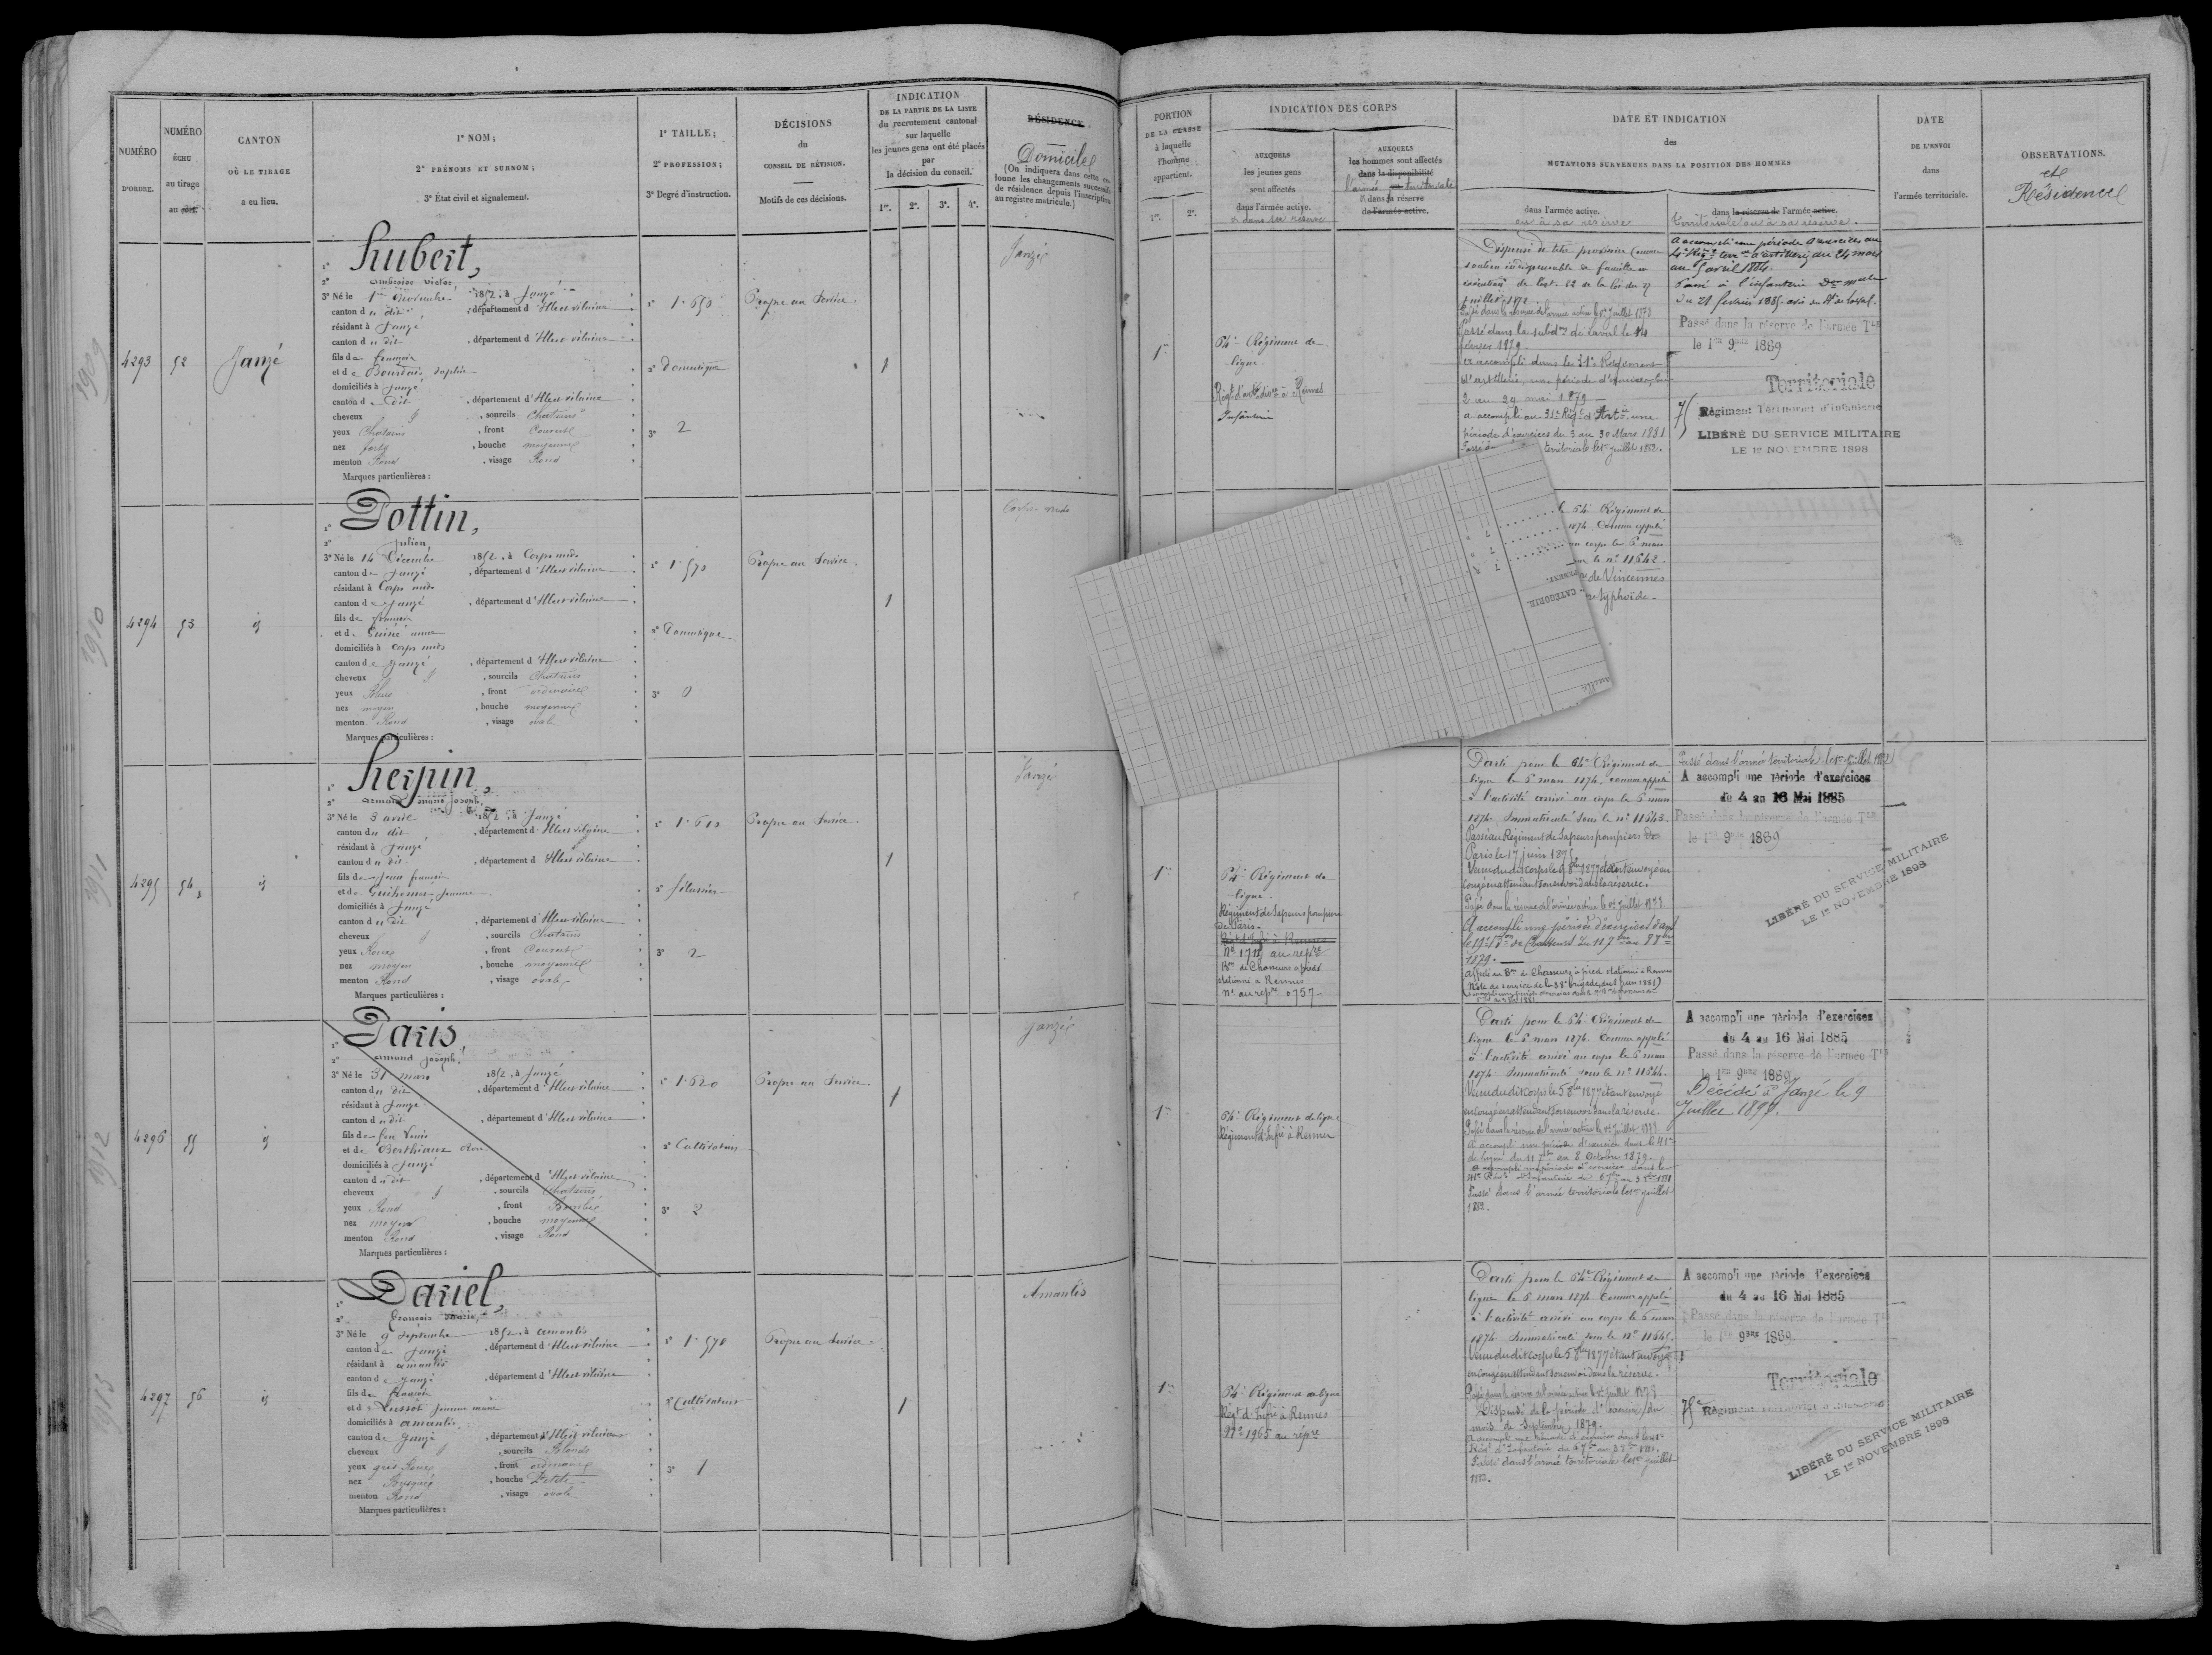 NUMÉRO
D'ORDRE.
NUMÉRO
ÉCHU
au tirage
au sort.
CANTON
OÙ LE TIRAGE
a eu lieu.
1º NOM;
2º PRÉNOMS ET SURNOM;
3º État civil et signalement.
1º TAILLE;
2º PROFESSION;
3º Degré d'instruction.
DÉCISIONS
du
CONSEIL DE RÉVISION.
Motifs de ces décisions.
INDICATION
DE LA PARTIE DE LA LISTE
du recrutement cantonal
sur laquelle
les jeunes gens ont été placés
par
la décision du conseil.
1re. 2e. 3e. 4e.
RÉSIDENCE
Domicile
(On indiquera dans cette co-
lonne les changements successifs
de résidence depuis l'inscription
au registre matricule.)
PORTION
DE LA CLASSE
à laquelle
l'homme
appartient.
1re. 2e.
INDICATION DES CORPS
AUXQUELS
les jeunes gens
sont affectés
dans l'armée active.
et dans sa réserve
AUXQUELS
les hommes sont affectés
dans la disponibilité
l'armée territoriale
dans la réserve
de l'armée active.
DATE ET INDICATION
des
MUTATIONS SURVENUES DANS LA POSITION DES HOMMES
dans l'armée active.
ou à sa réserve
dans la réserve de l'armée active.
territoriale ou à sa réserve.
DATE
DE L'ENVOI
dans
l'armée territoriale.
OBSERVATIONS.
et
Résidence
1909
4293 52 Janzé
1º Hubert,
2º Ambroise Victor
3º Né le 1er Novembre 1852, à Janzé
canton du dit, département d'Ille et vilaine
résidant à Janzé
canton du dit, département d'Ille et vilaine
fils de françois
et de Bourdais Sophie
domiciliés à Janzé
canton du dit, département d'Ille et vilaine
cheveux, sourcils Chatains
yeux Chatains, front Couvert
nez fort, bouche moyenne
menton Rond, visage Rond
Marques particulières :
1º 1.650
2º Domestique
3º 2
Propre au Service.
1
Janzé
1re
64e Régiment de
ligne
Régt d'artie divre à Rennes
Infanterie
Dispensé à titre provisoire comme
soutien indispensable de famille en
exécution de l'art. 22 de la loi du 27
juillet 1872.
Passé dans la réserve de l'armée active le 1er Juillet 1878
Passé dans la subdon de Laval le 14
février 1879
a accompli dans le 31e Régiment
d'artillerie, une période d'exercices du
2 au 29 mai 1879
a accompli au 31e Régt d'Artie une
période d'exercices du 3 au 30 Mars 1881
territoriale le 1er juillet 1882.
a accompli une période d'exercices au
au 5 avril 1884.
Passé à l'infanterie
du 21 février 1885 avis du
Passé dans la réserve de l'armée Tle
le 1er 9bre 1889
Territoriale
75 Régiment Territorial d'infanterie
LIBÉRÉ DU SERVICE MILITAIRE
LE 1er NOVEMBRE 1898
1910
4294 53 id
1º Pottin,
2º Julien,
3º Né le 14 Décembre 1852, à Corps nuds
canton de Janzé, département d'Ille et vilaine
résidant à Corps nuds
canton de Janzé, département d'Ille et vilaine
fils de françois
et de Guiné anne
domiciliés à Corps nuds
canton de Janzé, département d'Ille et vilaine
cheveux, sourcils Chatains
yeux Bleus, front ordinaire
nez moyen, bouche moyenne
menton Rond, visage ovale
Marques particulières :
1º 1.570
2º Domestique
3º 0
Propre au Service.
1
Corps nuds
CATÉGORIE.
64e Régiment de
1874. Comme appelé
au corps le 6 mars
le nº 11642.
de Vincennes
typhoïde.
1911
4295 54 id
1º Herpin,
2º Armand marie Joseph,
3º Né le 3 avril 1852, à Janzé
canton du dit, département d'Ille et vilaine
résidant à Janzé
canton du dit, département d'Ille et vilaine
fils de Jean françois
et de Guiheneuc Jeanne
domiciliés à Janzé
canton du dit, département d'Ille et vilaine
cheveux, sourcils Chatains
yeux Roux, front Couvert
nez moyen, bouche moyenne
menton Rond, visage ovale
Marques particulières :
1º 1.610
2º filassier
3º 2
Propre au Service.
1
Janzé
1re
64e Régiment de
ligne
Régiment de Sapeurs pompiers
de Paris.
Régt d'Infie à Rennes
Nº 1718 au répre
Bon de Chasseurs à pied
stationné à Rennes
Nº au répre 0757
Parti pour le 64e Régiment de
ligne le 6 mars 1874, comme appelé
à l'activité arrivé au corps le 6 mars
1874. Immatriculé sous le nº 11643.
Passé au Régiment de Sapeurs pompiers de
Paris le 17 juin 1875
Venu du dit corps le 1877 étant envoyé en
congé en attendant son envoi dans la réserve.
Passé dans la réserve de l'armée active le 1er Juillet 1878
A accompli une période d'exercices dans
le 19e Bon de Chasseurs du 11 7bre au 8 8bre
1879.
affecté au Bon de Chasseurs à pied stationné à Rennes
Note de service de la 38e brigade, du 5 Juin 1881)
Passé dans l'armée territoriale le 1er Juillet 1882
A accompli une période d'exercices
du 4 au 16 Mai 1885
Passé dans la réserve de l'armée Tle
le 1er 9bre 1889
LIBÉRÉ DU SERVICE MILITAIRE
LE 1er NOVEMBRE 1898
1912
4296 55 id
1º Paris,
2º Armand Joseph,
3º Né le 31 mars 1852, à Janzé
canton du dit, département d'Ille et vilaine
résidant à Janzé
canton du dit, département d'Ille et vilaine
fils de feu Louis
et de Berthiaux
domiciliés à Janzé
canton du dit, département d'Ille et vilaine
cheveux, sourcils Chatains
yeux Rond, front Bombé
nez moyen, bouche moyenne
menton Rond, visage Rond
Marques particulières :
1º 1.620
2º Cultivateur
3º 2
Propre au Service.
1
Janzé
1re
64e Régiment de ligne
Régiment d'Infie à Rennes
Parti pour le 64e Régiment de
ligne le 6 mars 1874. Comme appelé
à l'activité arrivé au corps le 6 mars
1874. Immatriculé sous le nº 11644.
Venu du dit corps le 5 8bre 1877 étant envoyé
en congé en attendant son envoi dans la réserve.
Passé dans la réserve de l'armée active le 1er Juillet 1878
a accompli une période d'exercice dans le 41e
de ligne du 11 7bre au 8 Octobre 1879.
a accompli une période d'exercices dans le
41e Régt d'Infanterie
Passé dans l'armée territoriale le 1er juillet
1882.
A accompli une période d'exercices
du 4 au 16 Mai 1885
Passé dans la réserve de l'armée Tle
le 1er 9bre 1889
Décédé à Janzé le 9
Juillet
1913
4297 56 id
1º Dariel,
2º François Marie,
3º Né le 9 Septembre 1852, à amanlis
canton de Janzé, département d'Ille et vilaine
résidant à amanlis
canton de Janzé, département d'Ille et vilaine
fils de françois
et de Lussot Jeanne marie
domiciliés à amanlis
canton de Janzé, département d'Ille et vilaine
cheveux, sourcils Blonds
yeux gris Roux, front ordinaire
nez Busqué, bouche Petite
menton Rond, visage ovale
Marques particulières :
1º 1.570
2º Cultivateur
3º 1
Propre au Service
1
Amanlis
1re
64e Régiment de ligne
Régt d'Infie à Rennes
Nº 1965 au répre
Parti pour le 64e Régiment de
ligne le 6 mars 1874 Comme appelé
à l'activité arrivé au corps le 6 mars
1874. Immatriculé sous le nº 11645.
Venu du dit corps le 5 8bre 1877 étant envoyé
en congé en attendant son envoi dans la réserve.
Passé dans la réserve de l'armée active le 1er Juillet 1878
Dispensé de la période d'exercices du
mois de Septembre 1879.
a accompli une période d'exercices dans le 41e
Régt d'Infanterie
Passé dans l'armée territoriale le 1er juillet
1882.
A accompli une période d'exercices
du 4 au 16 Mai 1885
Passé dans la réserve de l'armée Tle
le 1er 9bre 1889.
Territoriale
75e Régiment Territorial d'Infanterie
LIBÉRÉ DU SERVICE MILITAIRE
LE 1er NOVEMBRE 1898